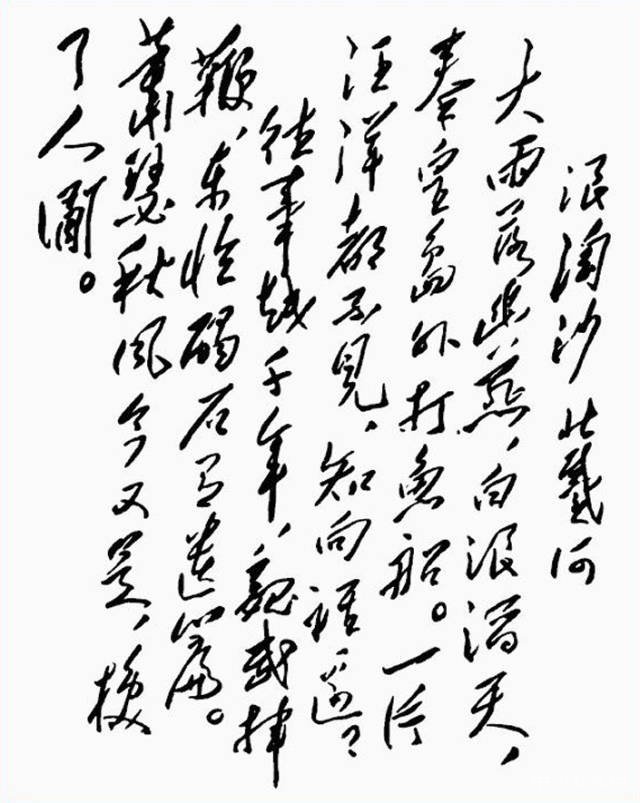 浪淘沙 北戴河
大雨落幽燕,白浪滔天,
秦皇島外打魚船。一片
汪洋都不見,知向誰邊?
往事越千年,魏武揮
鞭,東臨碣石有遺篇。
蕭瑟秋風今又是,換
了人間。